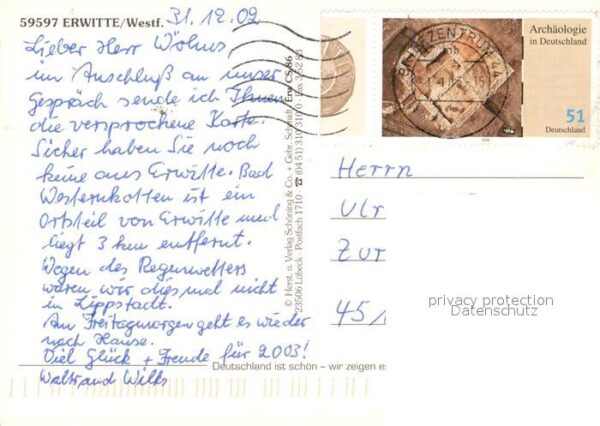 59597 ERWITTE/Westf. 31.12.02
Lieber Herr Wöhns,
im Anschluß an unser
Gespräch sende ich Ihnen
die versprochene Karte.
Sicher haben Sie noch
keine aus Erwitte. Bad
Westernkotten ist ein
Ortsteil von Erwitte und
liegt 3 km entfernt.
Wegen des Regenwetters
waren wir diesmal nicht
in Lippstadt.
Am Freitagmorgen geht es wieder
nach Hause.
Viel Glück + Freude für 2003!
Waltraud Wilks
© Herst. u. Verlag Schöning & Co. + Gebr. Schmidt
23506 Lübeck · Postfach 1710 · ☎ (0451) 310 310
Archäologie
in Deutschland
51
Deutschland
Herrn
Ulr
Zur
45
privacy protection
Datenschutz
Deutschland ist schön – wir zeigen es